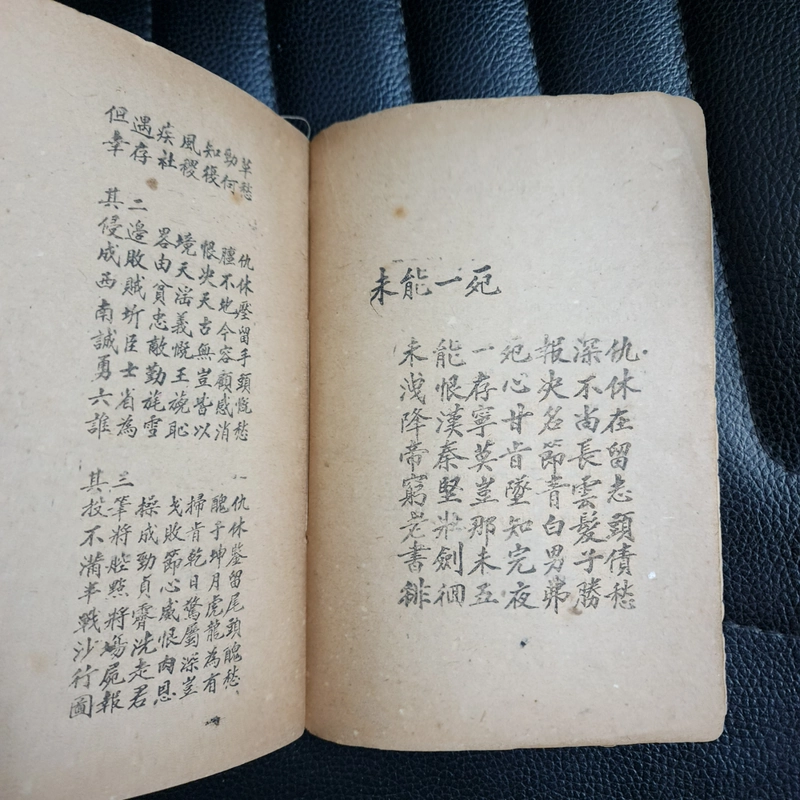 但遇疾風知勁草
幸存社稷復何愁
其二
侵邊畧境恨膻仇
成敗由天決不休
西賊貧淫天地壓
南圻忠義古今留
誠臣敵慨無容手
勇士勤王豈顧頭
六省旄旎皆感慨
誰為雪恥以消愁
其三
投筆操戈掃醜仇
不將成敗肯于休
滿腔勁節乾坤鑒
半點貞心日月留
戰將霽威驚虎尾
沙場洗恨屬龍頭
行屍走肉深為醜
圖報君恩豈有愁
未能一死
未能一死報深仇
洩恨存心決不休
降漢寧甘名尚在
帝秦莫肯節長留
窮堅豈墜青雲志
老壯那知白髮頭
書劍未完男子債
徘徊五夜弗勝愁